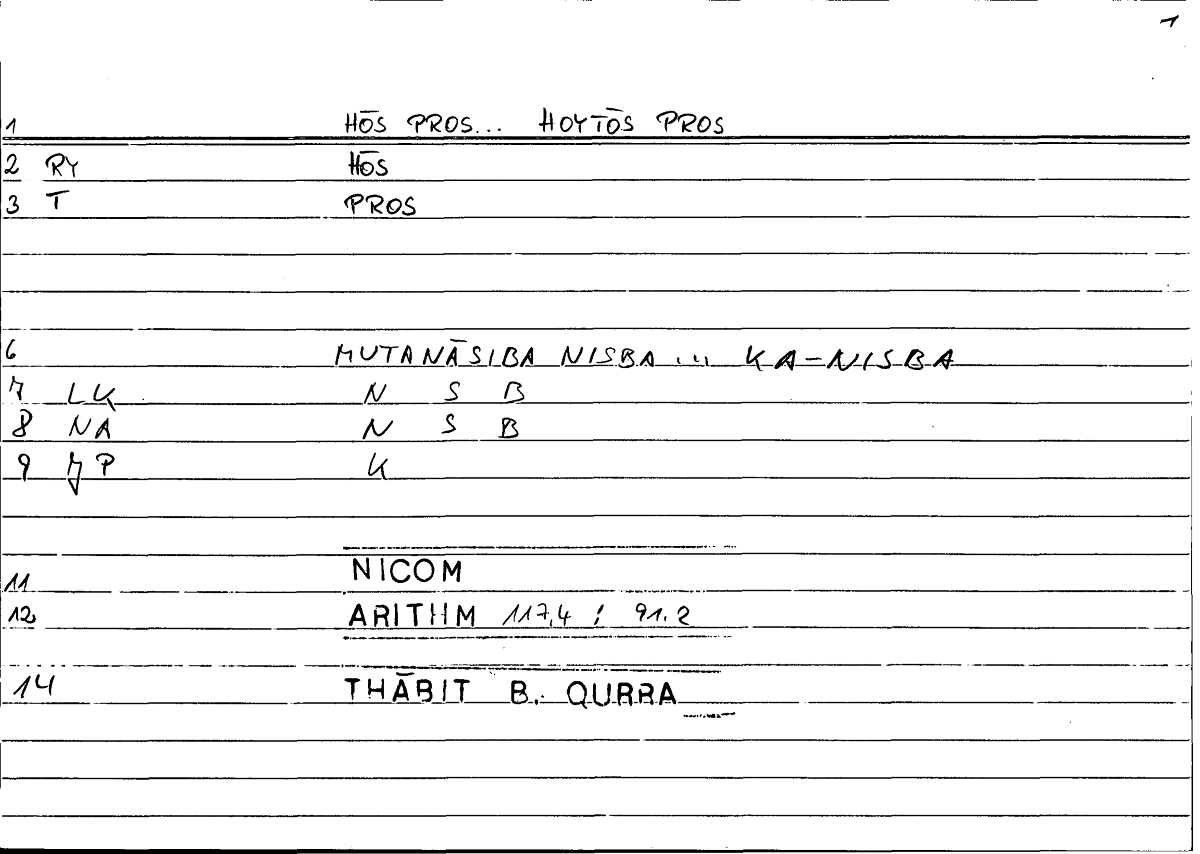 1
1 HŌS PROS... HOYTŌS PROS
2 RY HŌS
3 T PROS
6 MUTANĀSIBA NISBA ... KA-NISBA
7 LK N S B
8 NA N S B
9 JP K
11 NICOM
12 ARITHM 117,4 ; 91.2
14 THĀBIT B. QURRA